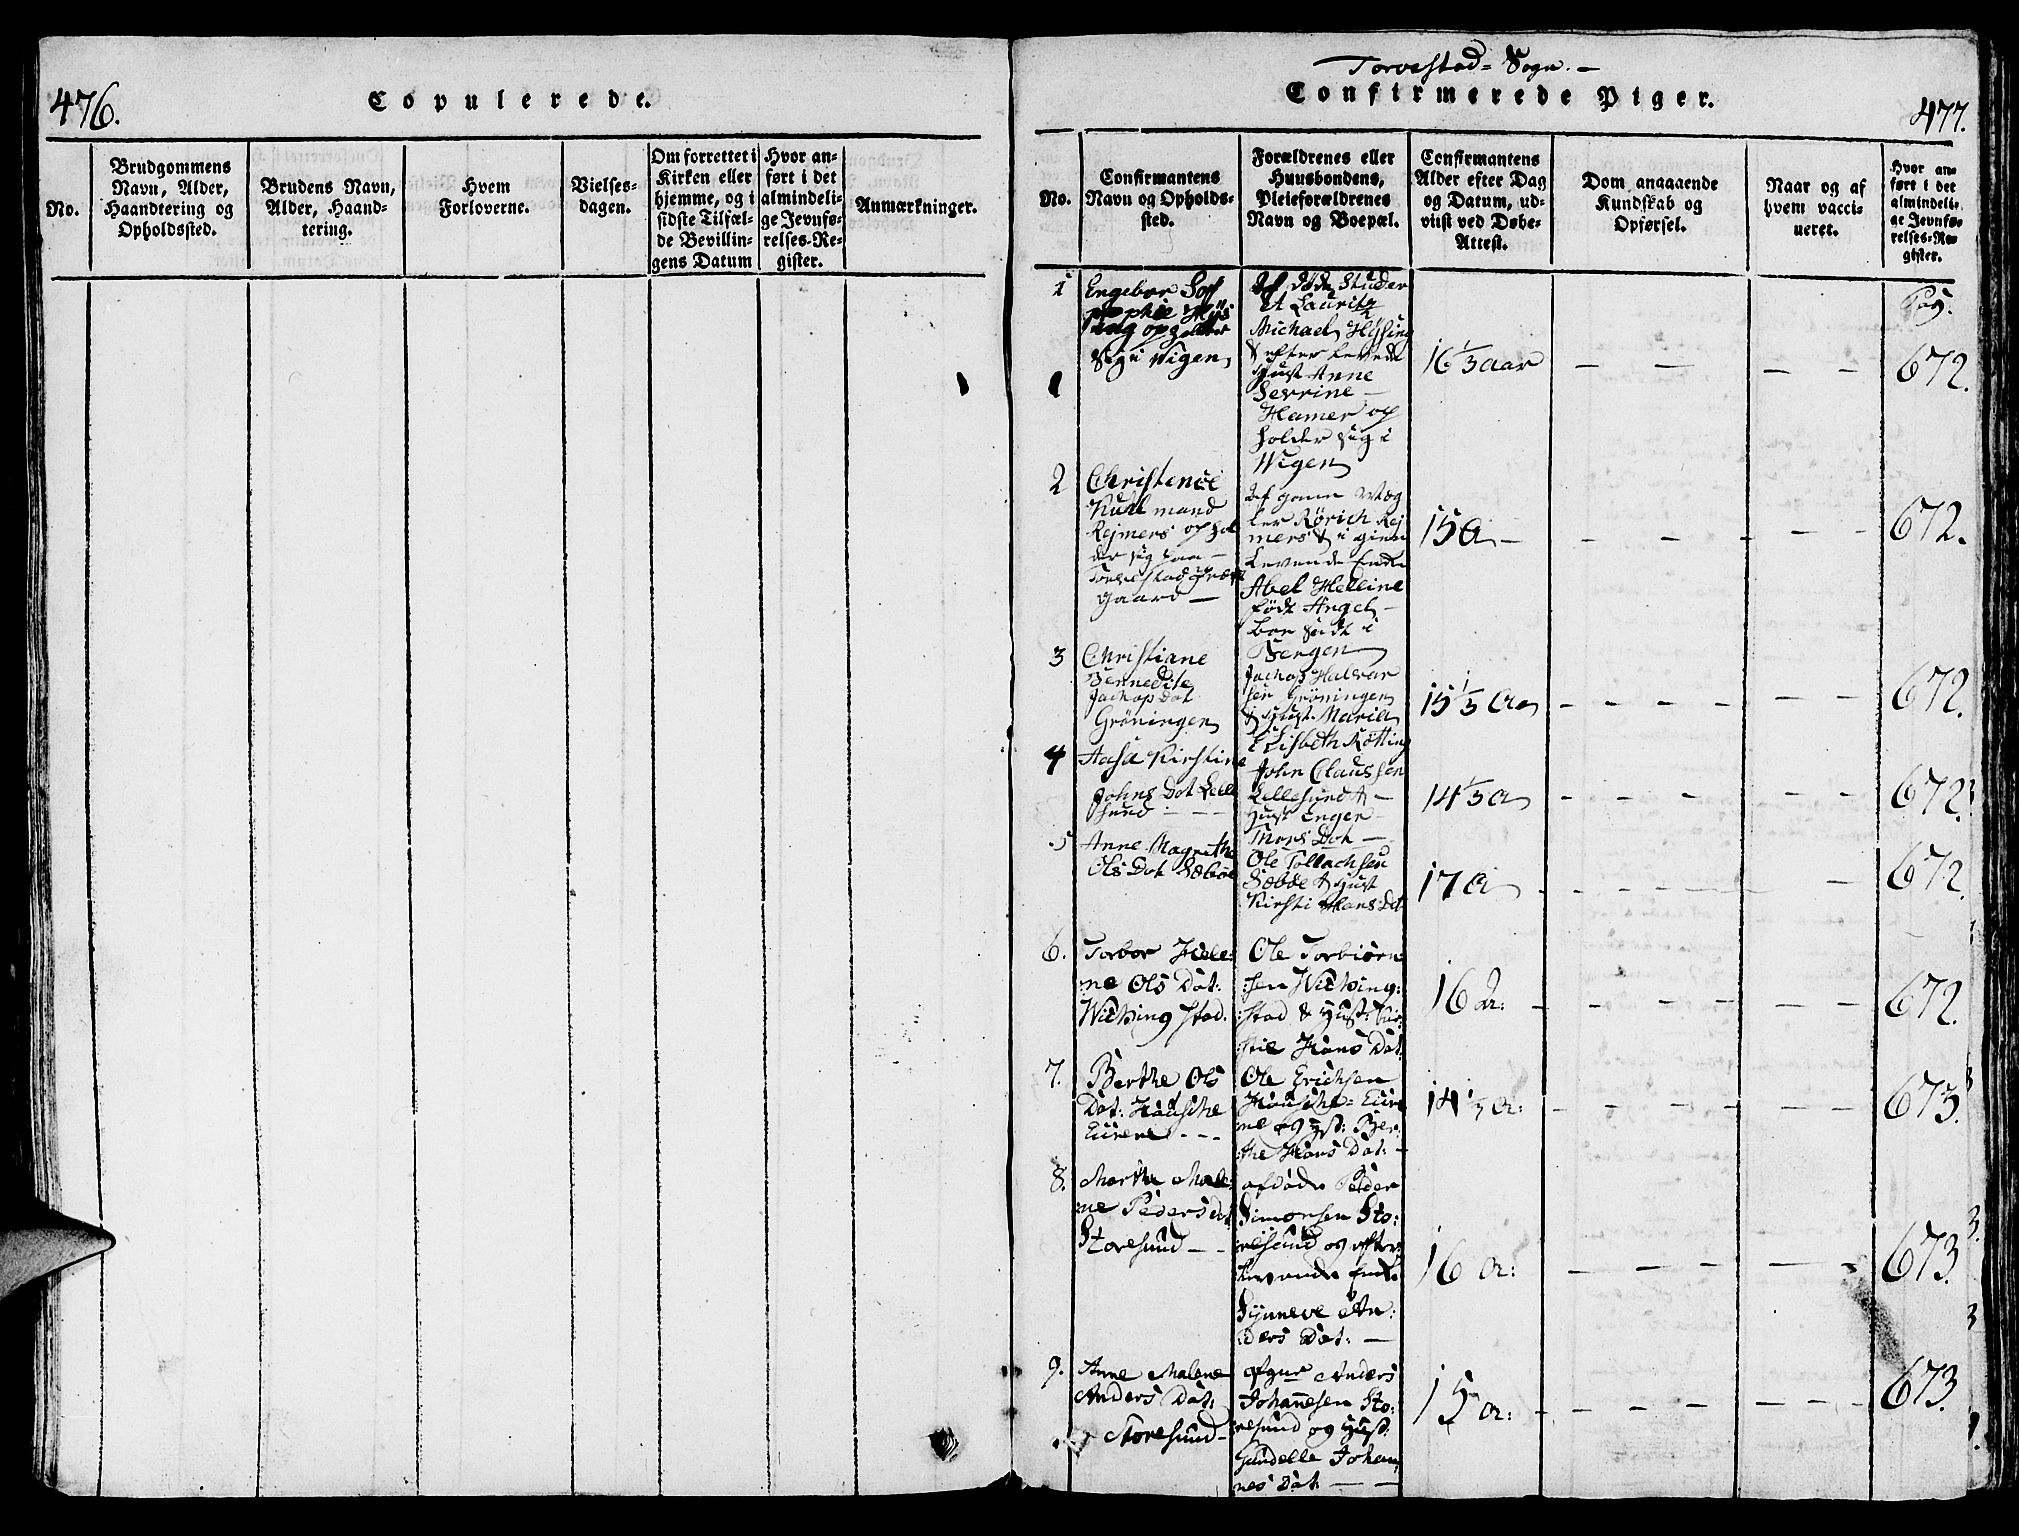 476.
Copulerede.
No.
Brudgommens Navn, Alder, Haandtering og Opholdssted.
Brudens Navn, Alder, Haandtering.
Hvem Forloverne.
Vielsesdagen.
Om forrettet i Kirken eller hjemme, og i sidste Tilfælde Bevillingens Datum
Hvor anført i det almindelige Jevnførelses-Register.
Anmærkninger.
Torvestad Sogn. –
Confirmerede Piger.
477.
No.
Confirmantens Navn og Opholdssted.
Forældrenes eller Huusbondens, Pleieforældrenes Navn og Boepæl.
Confirmantens Alder efter Dag og Datum, udviist ved Døbe-Attest.
Dom angaaende Kundskab og Opførsel.
Naar og af hvem vaccineret.
Hvor anført i det almindelige Jevnførelses-Register.
1
Engebor
Sophie
sig i Wigen
Studer
Lauritz
Michael Hysing
& efter Levende
Hust Anne
Sevrine –
Hamer op
holder sig i
Wigen
16 1/3 aar – – – –
Pag.
672.
2
Christence
Kuhlmand
Rejmers ophol
der sig paa –
Torvestad Præste
gaard –
Rørich Rej
mers & igien
Levende Enke
Abel Helline
født Angel –
i
Bergen
15 A – – – – – –
672.
3
Christiane
Bennedite
Jachop Dat
Grøningen
Jachop Halvar
sen Grøningen
& Hust. Maria
Elisbeth Røtting
15 1/3 Aa – – – – – –
672.
4
Aasa Kirstine
Johns Dat Lille
sund – – –
John Claussen
Lillesund & –
Hust Enger
Thors Dat –
14 1/3 a – – – – – –
672.
5
Anne Magrethe
Ols Dat Sæbøe
Ole Tollachsen
Sæbøe & Hust
Kirsti Hans Dat
17 A – – – – –
672
6.
Torbor Hele:
ne Ols Dat:
Wichingstad.
Ole Torbiørn
:sen Wiching:
:stad & Hust: Kir:
:stie Hans Dat:
16 A: – – – – – –
672.
7.
Berthe Ols
Dat: Hausche
Eierne – – –
Ole Erichsen
Hausche: Eier
ne og Hst: Ber:
:the Hans Dat: –
14 1/3 a: – – – – – –
673.
8.
Marthe Male:
ne Peders Dat
Storesund – –
afdøde Peder
Simonsen Sto:
resund og efter:
levende Enke
Synneve An:
:ders Dat: –
16 a: – – – – –
673.
9.
Anne Malene
Anders Dat:
Storesund –
Anders
Johannesen Sto:
resund og Hust:
Gundelle Johan:
nes Dat – –
15 a: – – – – – –
673.